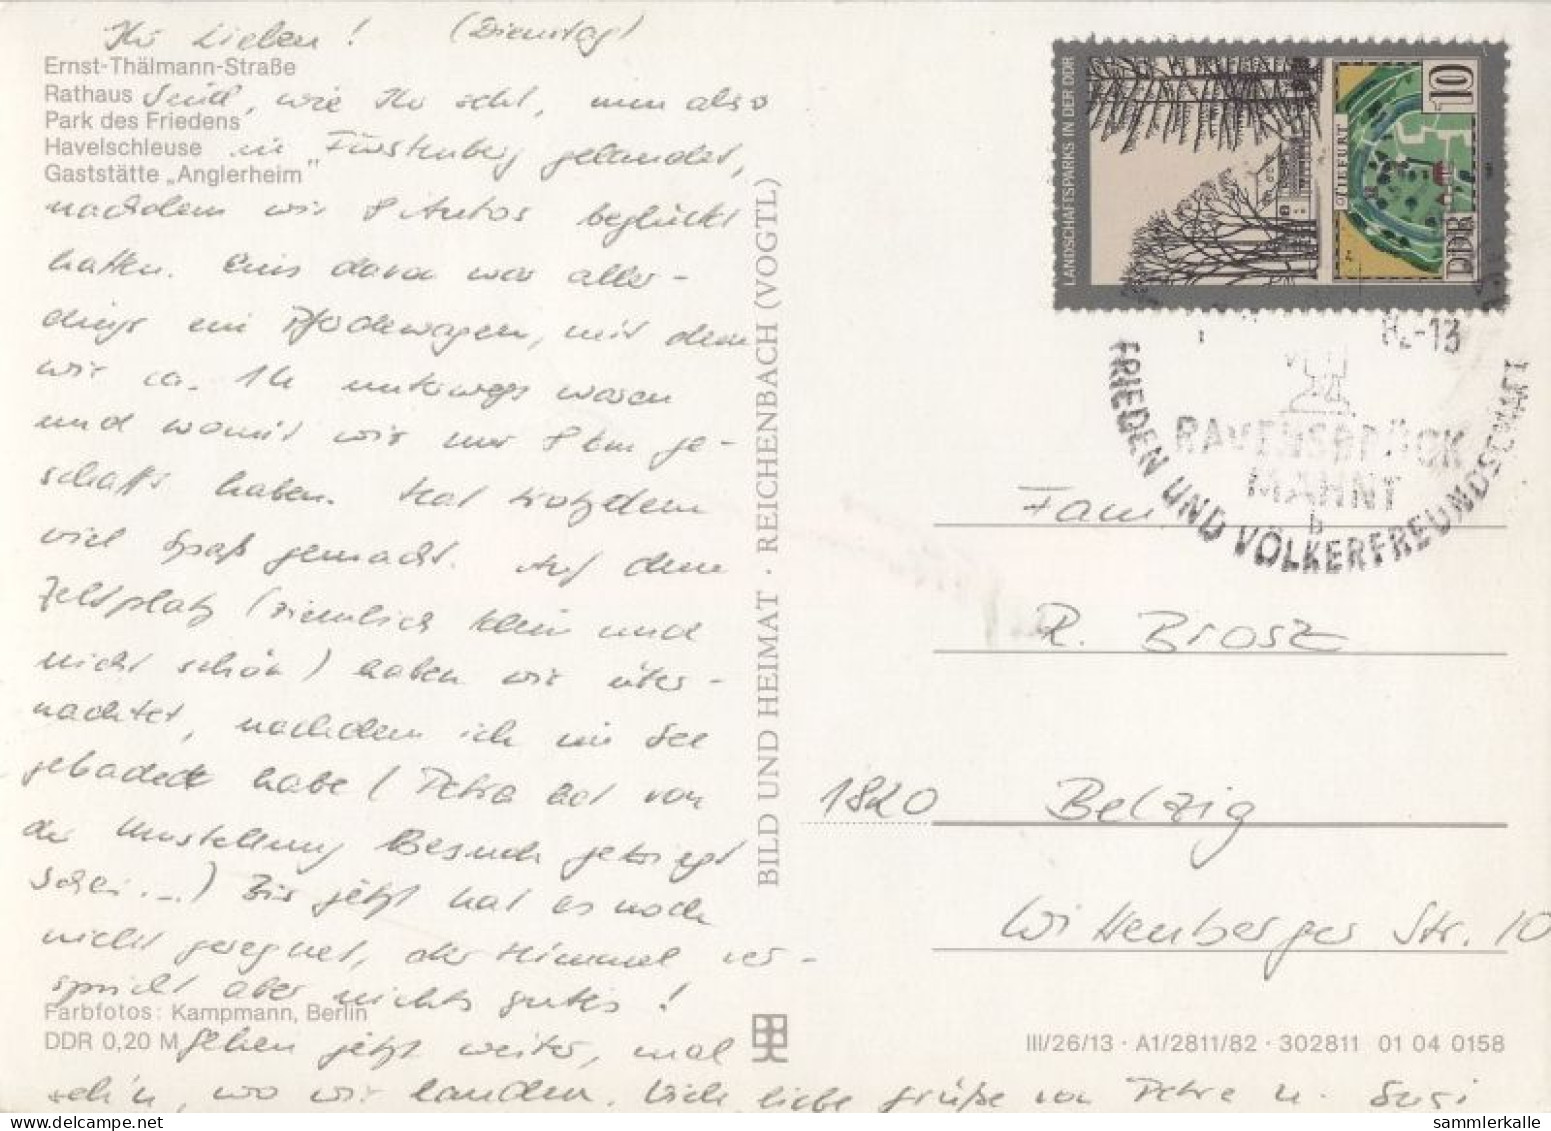 Ihr Lieben! (Dienstag)
Ernst-Thälmann-Straße
Rathaus
Park des Friedens
Havelschleuse
Gaststätte „Anglerheim"
Sind, wie Ihr seht, nun also
in Fürstenberg gelandet,
nachdem wir 8 Autos beglückt
hatten. Eins davon war aller-
dings ein Pferdewagen, mit dem
wir ca. 1h unterwegs waren
und womit wir nur 8 km ge-
schafft haben. Hat trotzdem
viel Spaß gemacht. Auf dem
Zeltplatz (ziemlich klein und
nicht schön) haben wir über-
nachtet, nachdem ich im See
gebadet habe (Petra hat von
der Umstellung Besuch gekriegt
) Bis jetzt hat es noch
nicht geregnet, der Himmel ver-
spricht aber nichts gutes!
Farbfotos: Kampmann, Berlin
DDR 0,20 M
Gehen jetzt weiter, mal
seh'n, wo wir landen. Viele liebe Grüße von Petra u. Susi
BILD UND HEIMAT · REICHENBACH (VOGTL)
LANDSCHAFTSPARKS IN DER DDR
TIEFURT
10
DDR
82-13
RAVENSBRÜCK
MAHNT
b
FRIEDEN UND VÖLKERFREUNDSCHAFT
Fam.
R. Brosz
1820 Belzig
Wittenberger Str. 10
III/26/13 · A1/2811/82 · 302811 01 04 0158
sammlerkalle